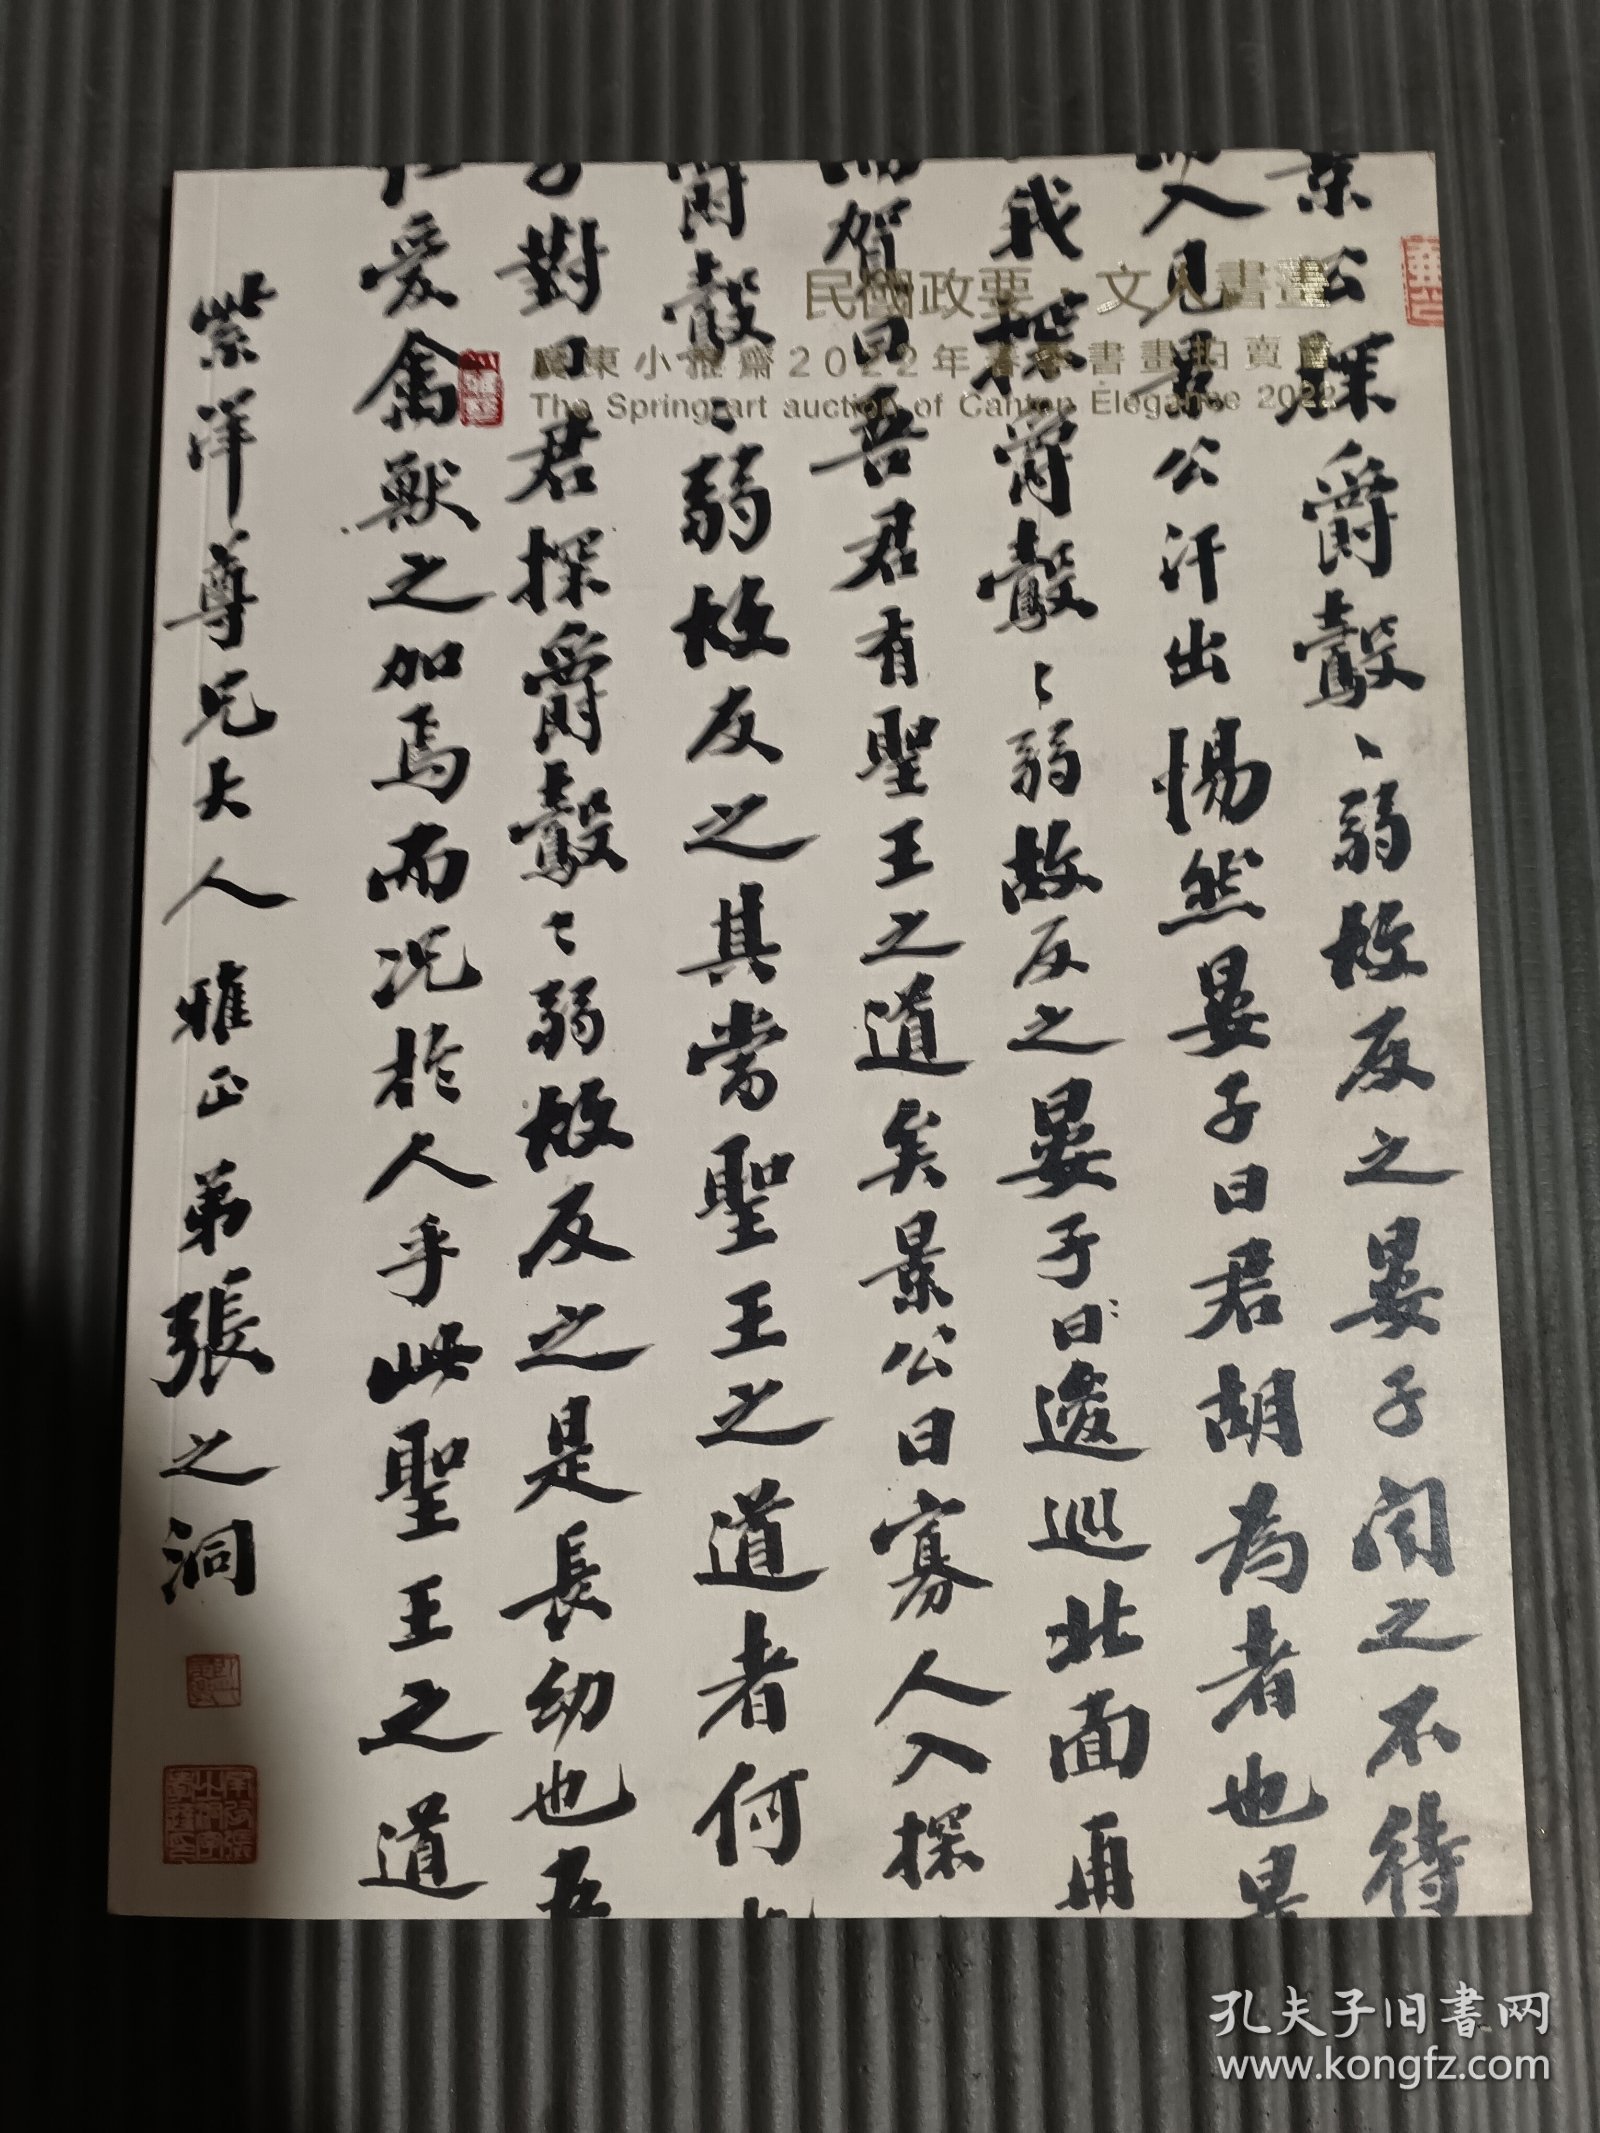 民國政要 文人書畫
廣東小雅齋2022年春季書畫拍賣會
The Spring art auction of Canton Elegance 2022
景公探爵鷇〻弱故反之晏子聞之不待
入見景公汗出惕然晏子曰君胡為者也景
我探爵鷇〻弱故反之晏子曰逡巡北面再
而賀曰吾君有聖王之道矣景公曰寡人入探
爵鷇〻弱故反之其當聖王之道者何
對曰君探爵鷇〻弱故反之是長幼也吾
仁愛禽獸之加焉而況於人乎此聖王之道
紫洋尊兄大人 雅正 弟張之洞
孔夫子旧书网
www.kongfz.com